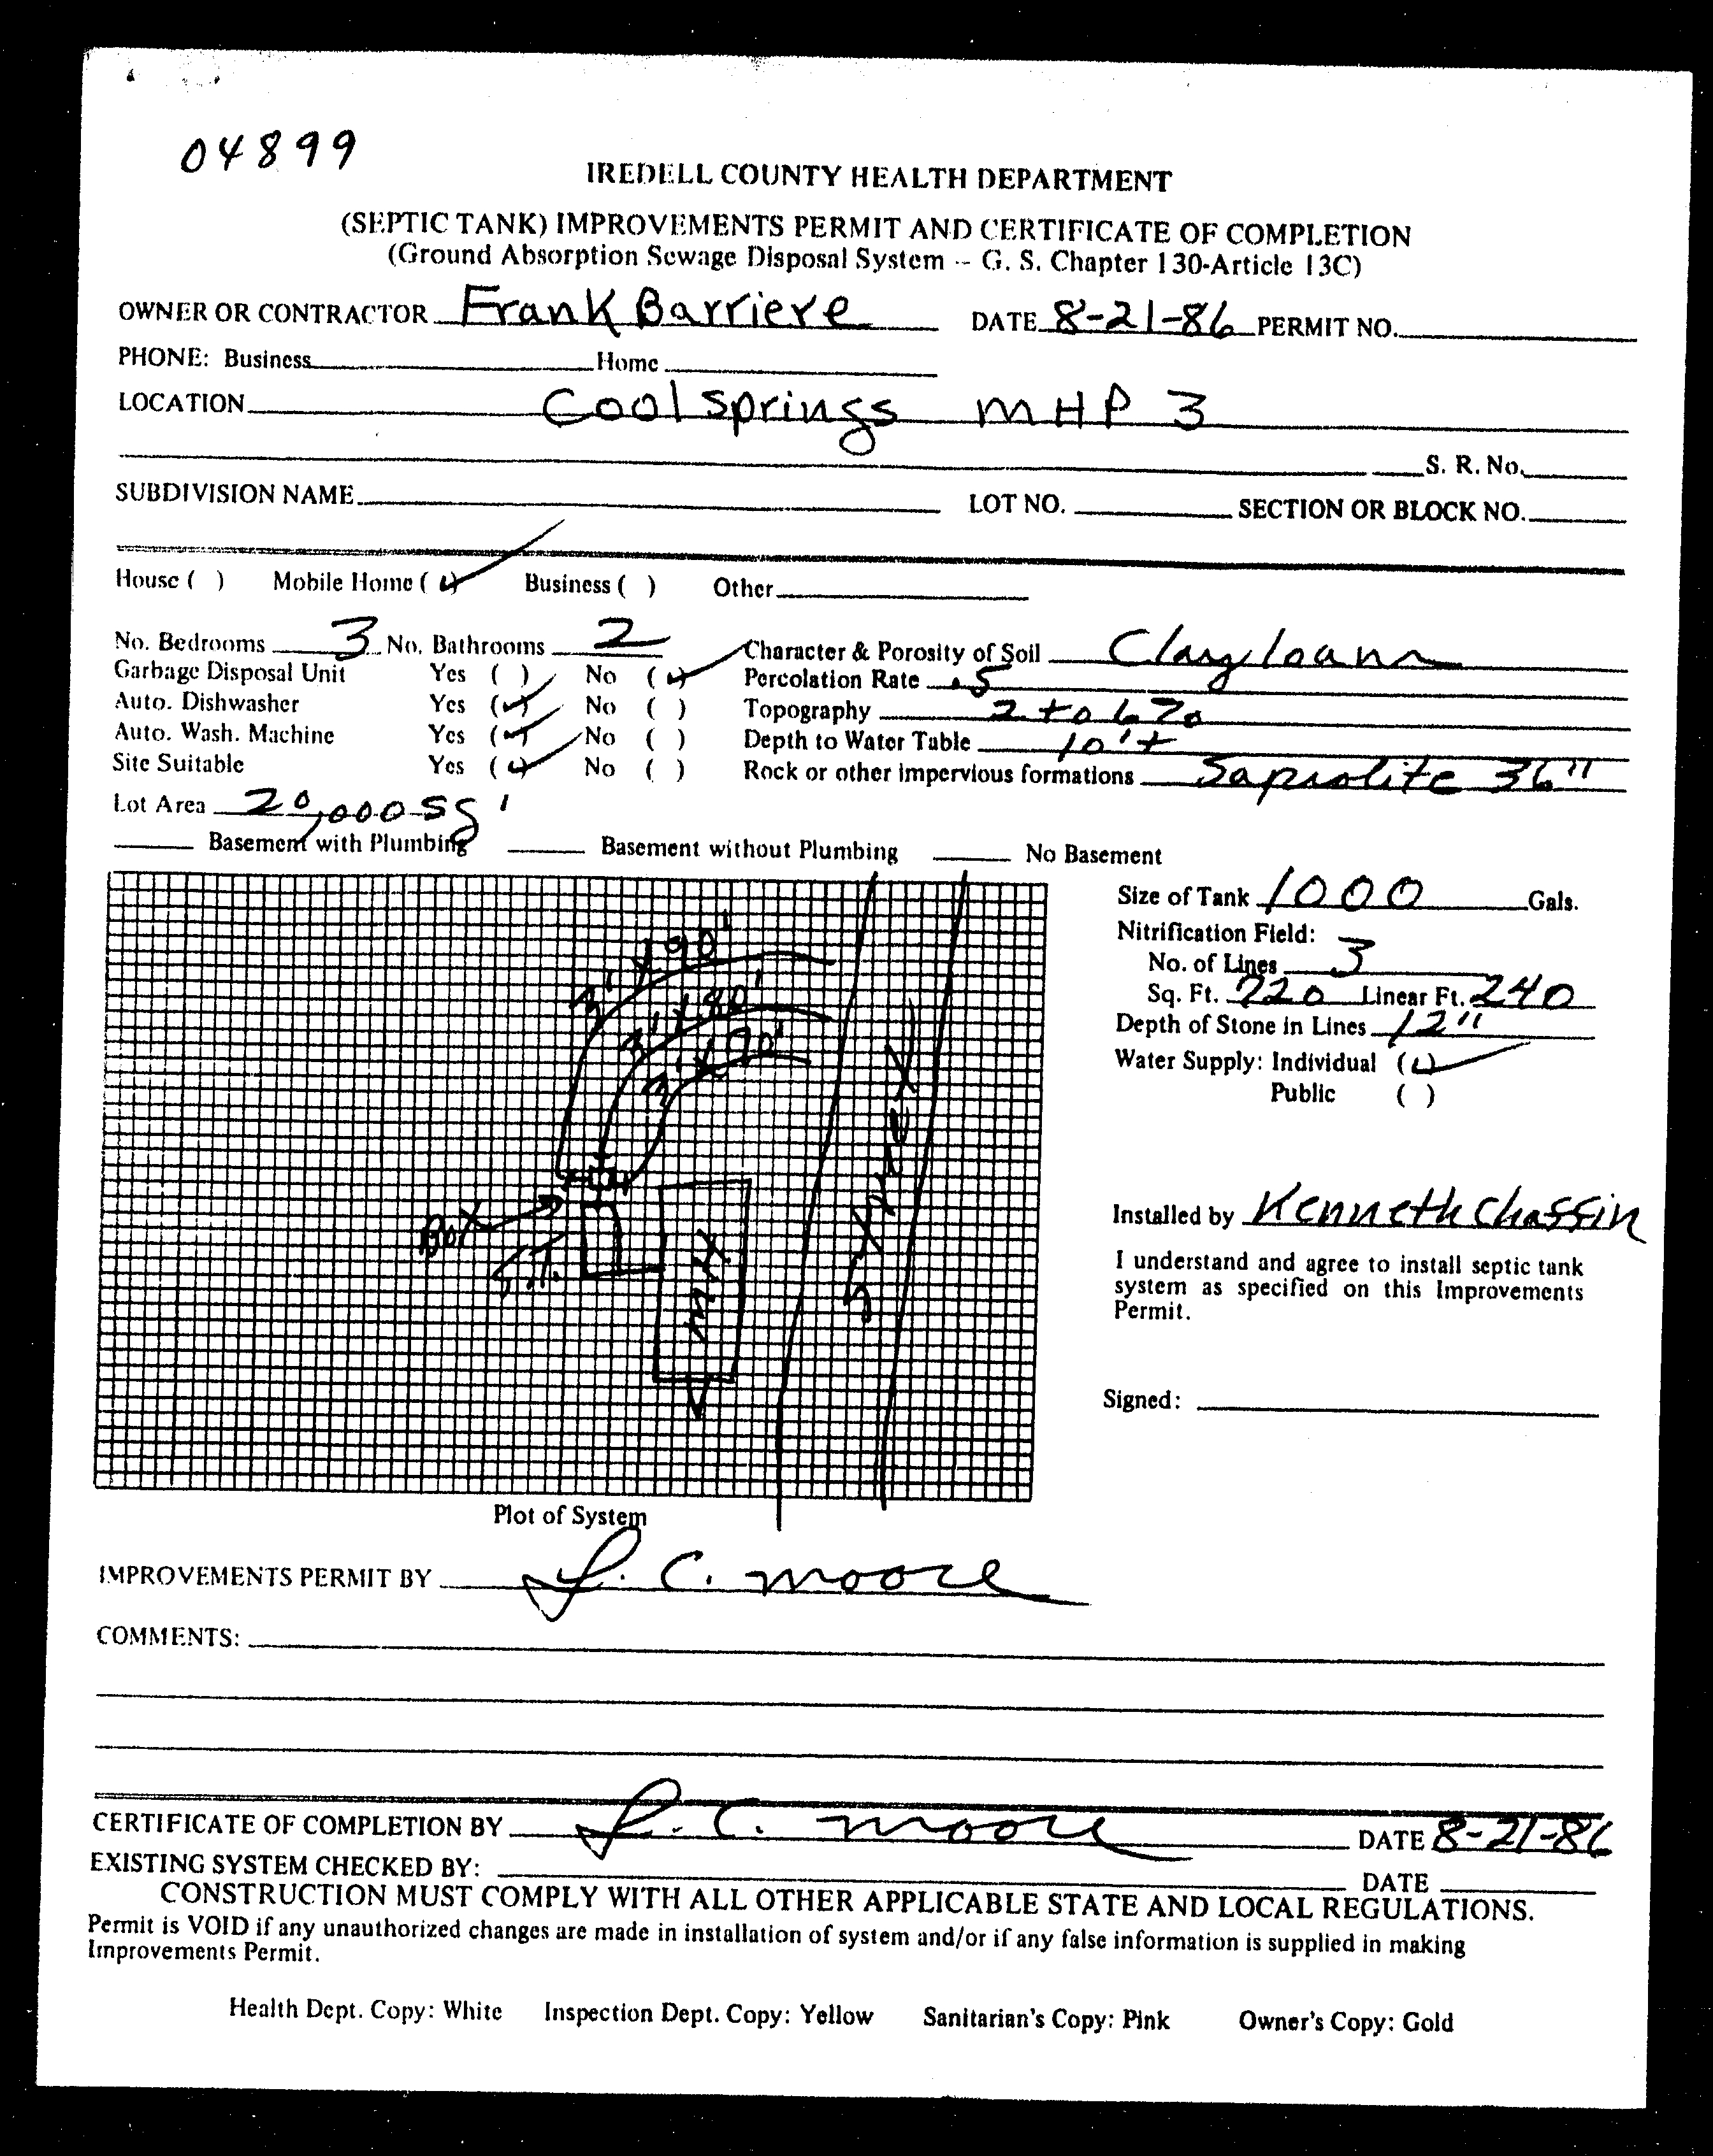 04899
IREDELL COUNTY HEALTH DEPARTMENT
(SEPTIC TANK) IMPROVEMENTS PERMIT AND CERTIFICATE OF COMPLETION
(Ground Absorption Sewage Disposal System -- G. S. Chapter 130-Article 13C)
OWNER OR CONTRACTOR Frank Barriere DATE 8-21-86 PERMIT NO.
PHONE: Business Home
LOCATION Cool springs MHP 3
S. R. No.
SUBDIVISION NAME LOT NO. SECTION OR BLOCK NO.
House ( ) Mobile Home (✓) Business ( ) Other
No. Bedrooms 3 No. Bathrooms 2 Character & Porosity of Soil Clay loam
Garbage Disposal Unit Yes ( ) No (✓) Percolation Rate .5
Auto. Dishwasher Yes (✓) No ( ) Topography 2 to 6%
Auto. Wash. Machine Yes (✓) No ( ) Depth to Water Table 10'+
Site Suitable Yes (✓) No ( ) Rock or other impervious formations Saprolite 36"
Lot Area 20,000 sq '
Basement with Plumbing Basement without Plumbing No Basement
Size of Tank 1000 Gals.
Nitrification Field:
No. of Lines 3
Sq. Ft. 720 Linear Ft. 240
Depth of Stone in Lines 12"
Water Supply: Individual (✓)
Public ( )
3' x 90'
3' x 80'
Box
S.T.
Installed by Kenneth Chaffin
I understand and agree to install septic tank
system as specified on this Improvements
Permit.
Signed:
Plot of System
IMPROVEMENTS PERMIT BY L. C. Moore
COMMENTS:
CERTIFICATE OF COMPLETION BY L. C. Moore DATE 8-21-86
EXISTING SYSTEM CHECKED BY: DATE
CONSTRUCTION MUST COMPLY WITH ALL OTHER APPLICABLE STATE AND LOCAL REGULATIONS.
Permit is VOID if any unauthorized changes are made in installation of system and/or if any false information is supplied in making
Improvements Permit.
Health Dept. Copy: White Inspection Dept. Copy: Yellow Sanitarian's Copy: Pink Owner's Copy: Gold